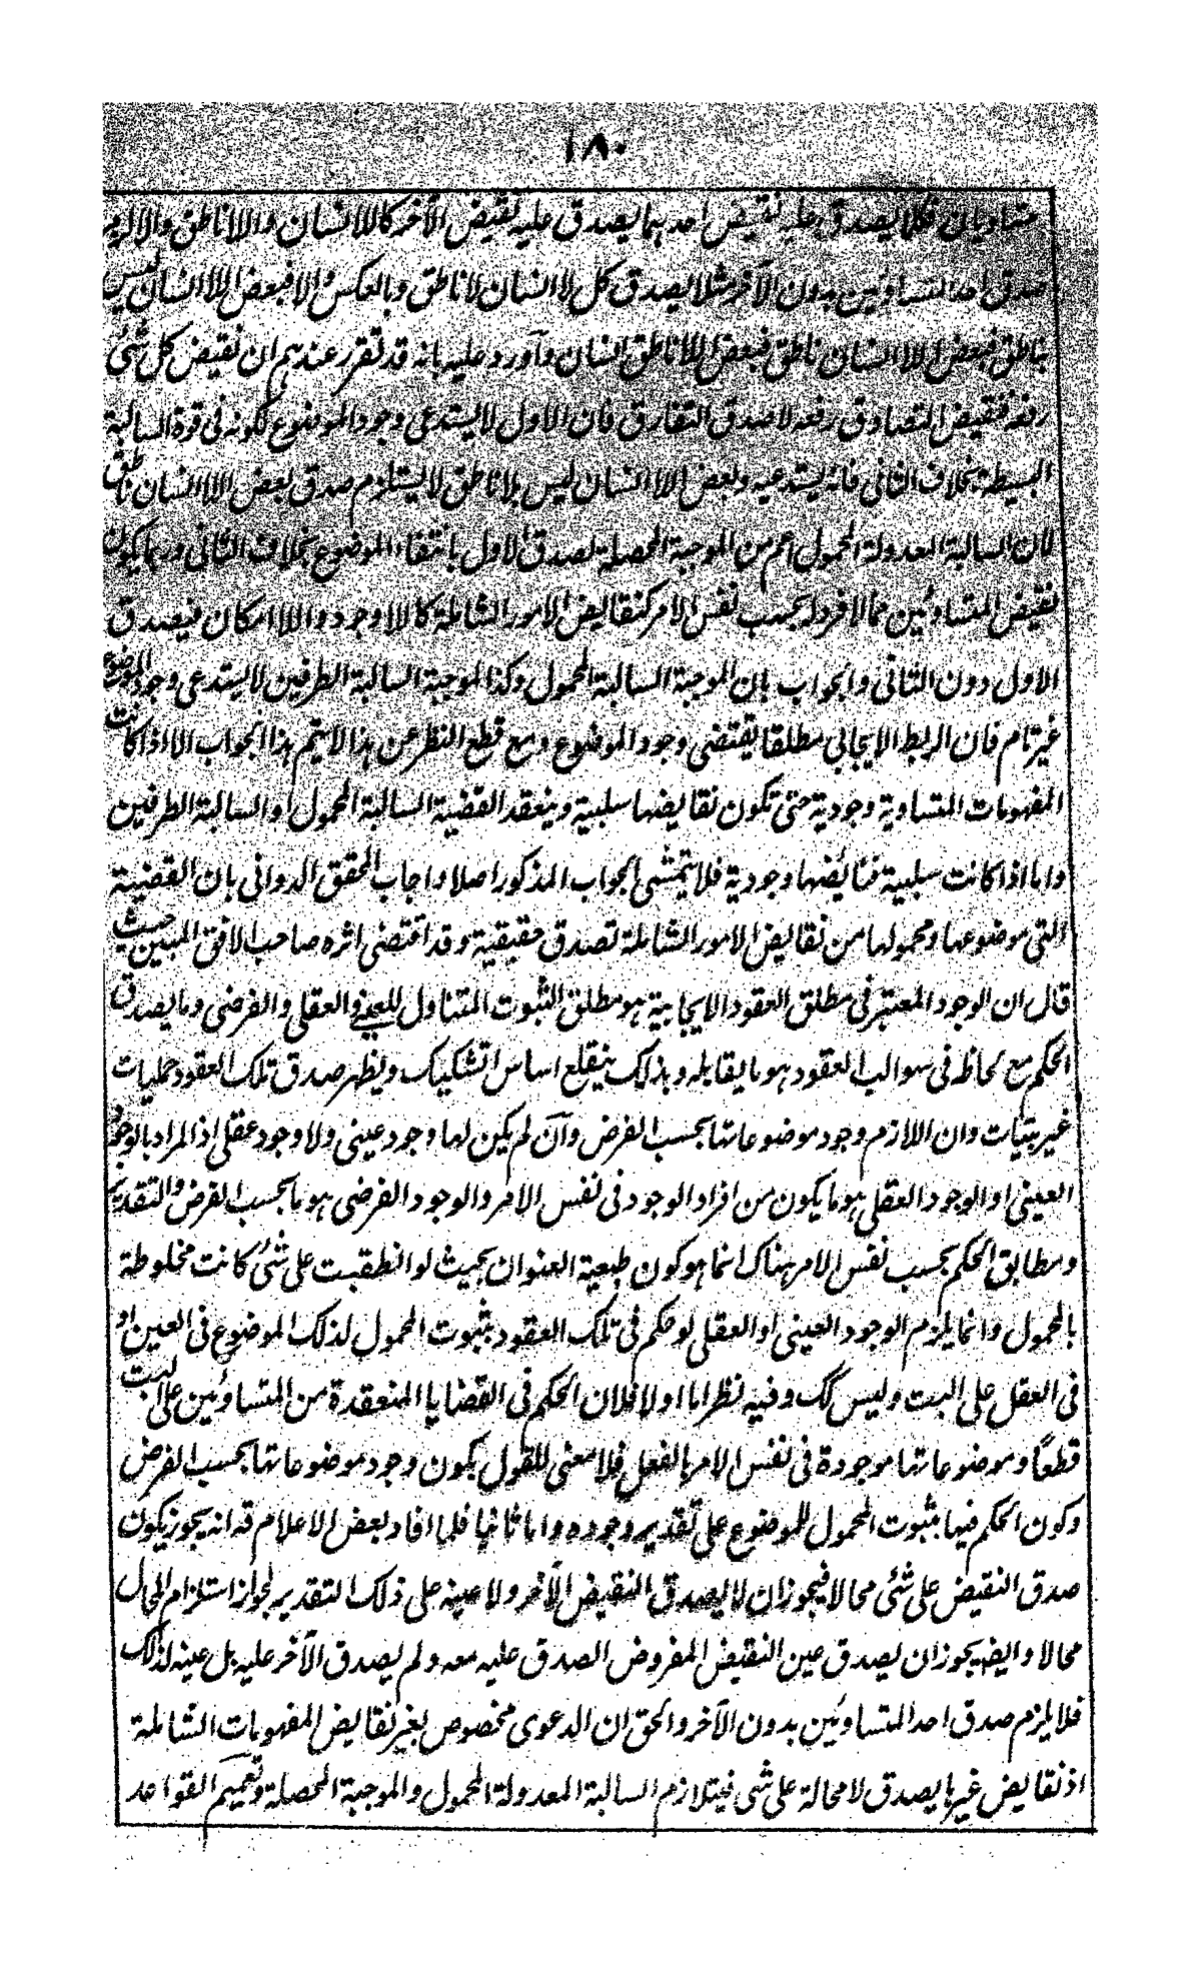 ١٨٠
متساويان فكلما يصدق عليه نقيض احدهما يصدق عليه نقيض الآخر كاللاانسان واللاناطق والا لزم
صدق احد المتساويين بدون الآخر مثلا يصدق كل لاانسان لاناطق وبالعكس والا فبعض اللاانسان ليس
بناطق فبعض اللاانسان ناطق فبعض اللاناطق انسان وآورد عليه بانه قد تقرر عندهم ان نقيض كل شئ
رفعه فنقيض التصادق رفعه لا صدق التفارق فان الاول لا يستدعى وجود الموضوع لكونه فى قوة السالبة
البسيطة بخلاف الثانى فانه يستدعيه وبعض اللاانسان ليس بلاناطق لا يستلزم صدق بعض اللاانسان ناطق
لان السالبة المعدولة المحمول اعم من الموجبة المحصلة لصدق الاول بانتفاء الموضوع بخلاف الثانى وربما يكون
نقيض المتساويين مما لا فرد له بحسب نفس الامر كنقايض الامور الشاملة كاللاوجود واللاامكان فيصدق
الاول دون الثانى والجواب بان الموجبة السالبة المحمول وكذا الموجبة السالبة الطرفين لا يستدعى وجود الموضوع
غير تام فان الربط الايجابى مطلقا يقتضى وجود الموضوع ومع قطع النظر عن هذا لا يتم هذا الجواب الا اذا كانت
المفهومات المتساوية وجودية حتى تكون نقايضها سلبية وينعقد القضية السالبة المحمول او السالبة الطرفين
واما اذا كانت سلبية فنقائضها وجودية فلا يتمشى الجواب المذكور اصلا واجاب المحقق الدوانى بان القضية
التى موضوعها ومحمولها من نقايض الامور الشاملة تصدق حقيقية وقد اقتضى اثره صاحب الافق المبين حيث
قال ان الوجود المعتبر فى مطلق العقود الايجابية هو مطلق الثبوت المتناول للعينى والعقلى والفرضى وما يصدق
الحكم مع لحاظه فى سوالب العقود هو ما يقابله وبذلك ينقلع اساس التشكيك ويظهر صدق تلك العقود حمليات
غير بتيات وان اللازم وجود موضوعاتها بحسب الفرض وآن لم يكن لها وجود عينى ولا وجود عقلى اذ المراد بالوجود
العينى او الوجود العقلى هو ما يكون من افراد الوجود فى نفس الامر والوجود الفرضى هو ما بحسب الفرض والتقدير
ومطابق الحكم بحسب نفس الامر هناك انما هو كون طبعية العنوان بحيث لو انطقبت على شئ كانت مخلوطة
بالمحمول وانما يلزم الوجود العينى او العقلى لو حكم فى تلك العقود بثبوت المحمول لذلك الموضوع فى العين او
فى العقل على البت وليس كك وفيه نظر اما اولا فلان الحكم فى القضايا المنعقدة من المتساويين على البت
قطعًا وموضوعاتها موجودة فى نفس الامر بالفعل فلا معنى للقول بكون وجود موضوعاتها بحسب الفرض
وكون الحكم فيها بثبوت المحمول للموضوع على تقدير وجوده واما ثانيا فلما افاد بعض الاعلام قه انه يجوز يكون
صدق النقيض على شئ محالا فيجوز ان لا يصدق النقيض الآخر ولا عينه على ذلك التقدير لجواز استلزام المحال
محالا وايضا يجوز ان يصدق عين النقيض المفروض الصدق عليه معه ولم يصدق الآخر عليه بل عينه لذلك
فلا يلزم صدق احد المتساويين بدون الآخر والحق ان الدعوى مخصوص بغير نقايض المفهومات الشاملة
اذ نقايض غيرها يصدق لا محالة على شى فيتلازم السالبة المعدولة المحمول والموجبة المحصلة وتعميم القواعد